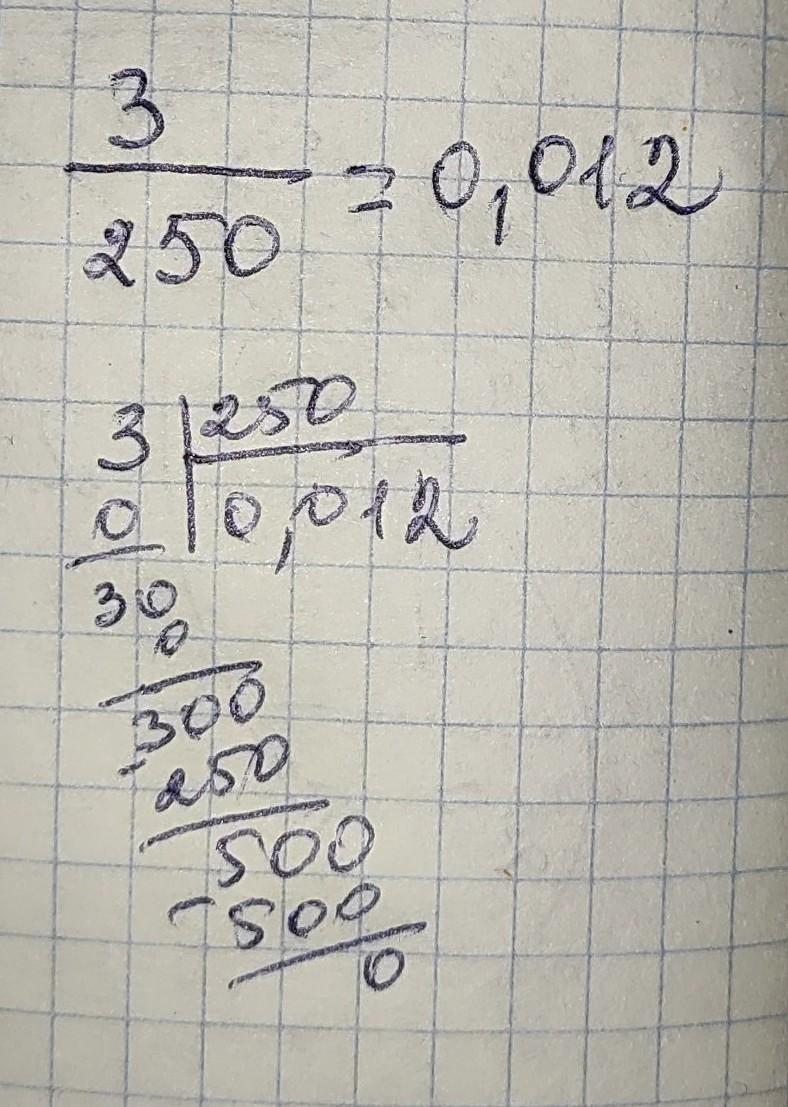 3
250 = 0,012
3 250
0 0,012
30
0
300
- 250
500
- 500
0